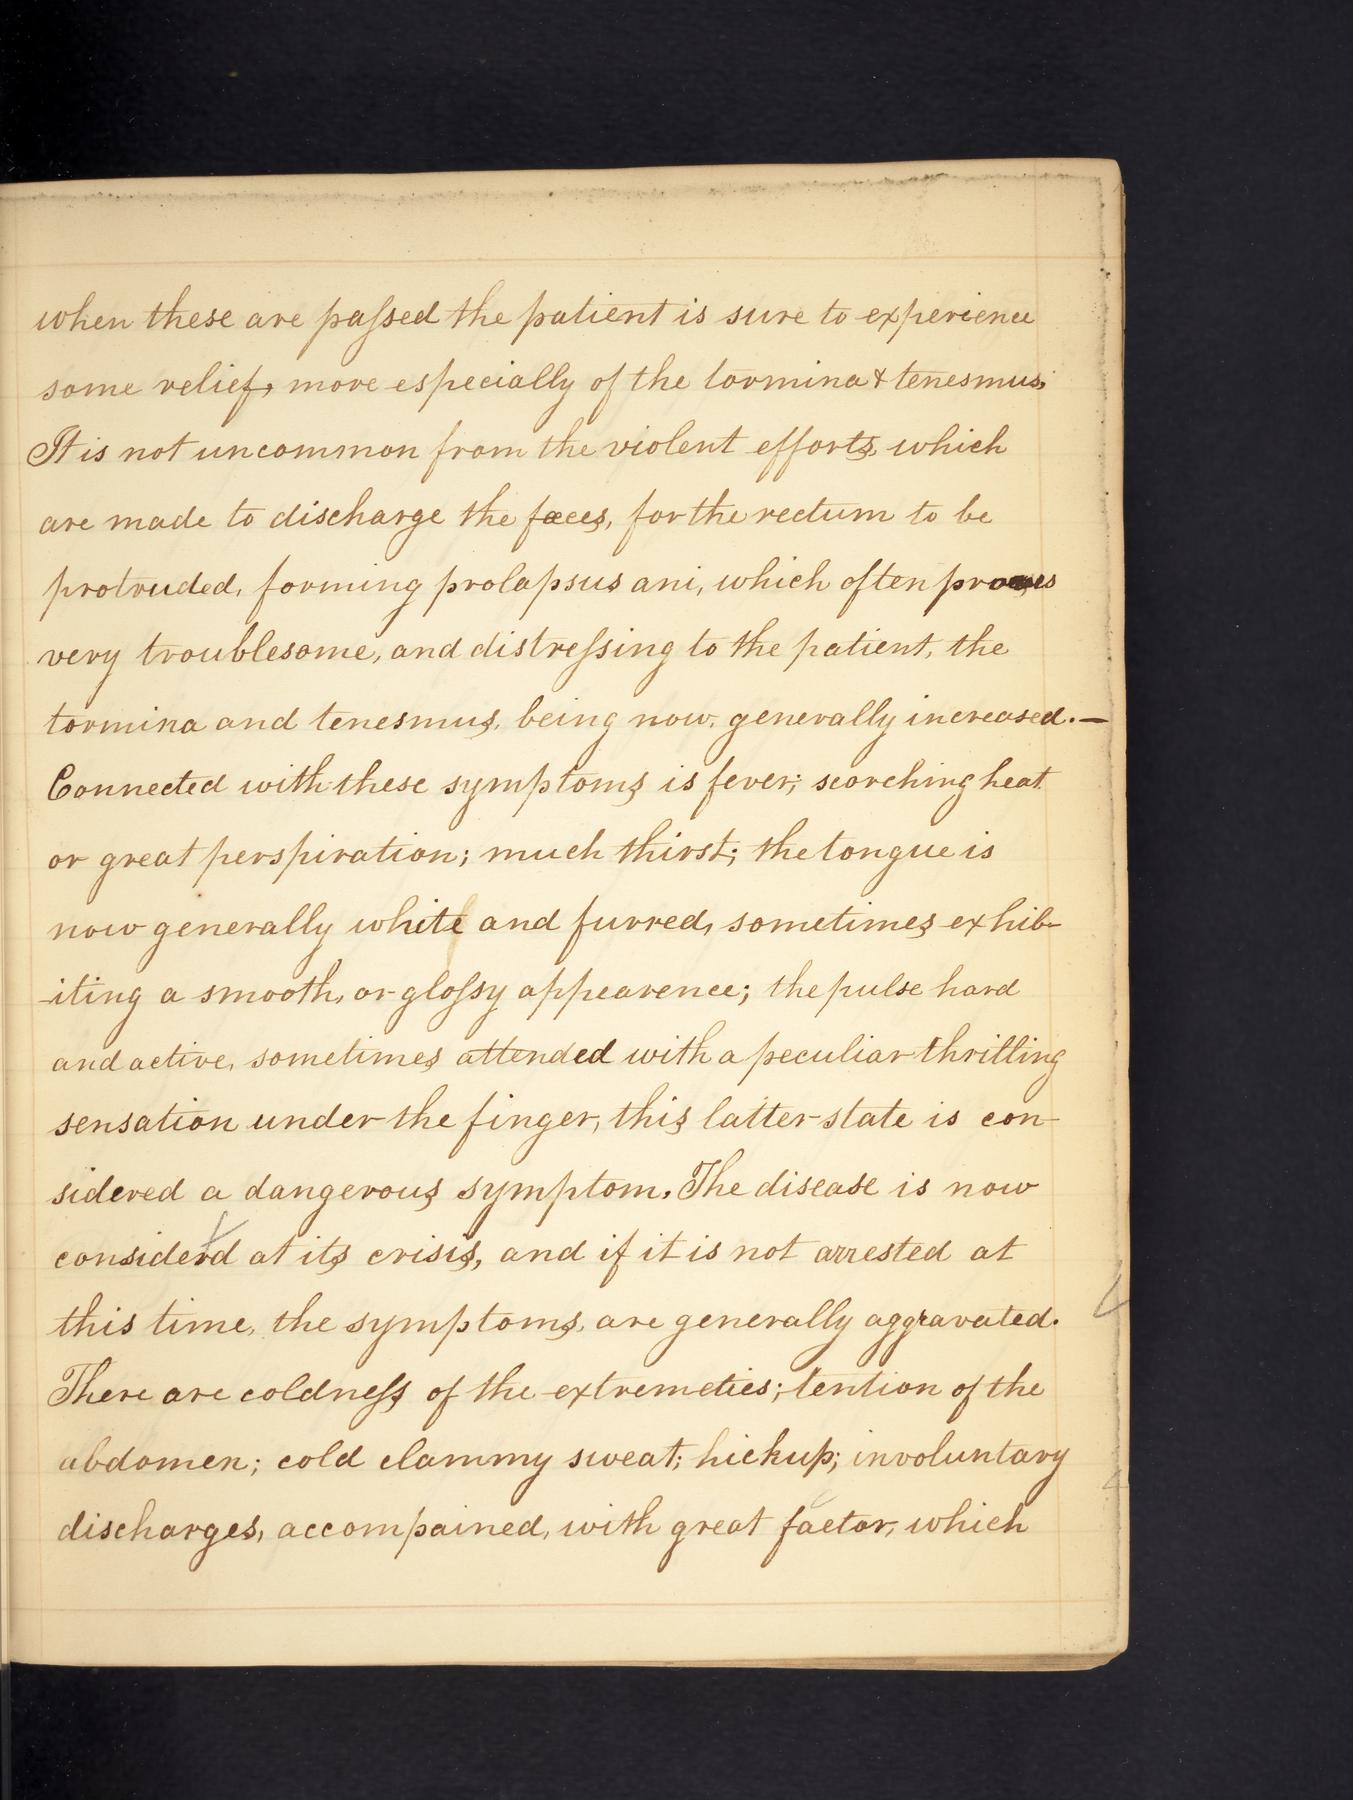 when these are paſsed the patient is sure to experience
some relief, more especially of the tormina & tenesmus.
It is not uncommon from the violent efforts, which
are made to discharge the fæces, for the rectum to be
protruded, forming prolapsus ani, which often proves
very troublesome, and distreſsing to the patient, the
tormina and tenesmus, being now, generally increased.—
Connected with these symptoms is fever; scorching heat
or great perspiration; much thirst; the tongue is
now generally white and furred, sometimes exhib-
-iting a smooth, or gloſsy appearence; the pulse hard
and active, sometimes attended with a peculiar thrilling
sensation under the finger, this latter state is con-
sidered a dangerous symptom. The disease is now
considerd at its crisis, and if it is not arrested at
this time, the symptoms, are generally aggravated.
There are coldneſs of the extremeties; tention of the
abdomen; cold clammy sweat; hickup; involuntary
discharges, accompained, with great fœtor, which